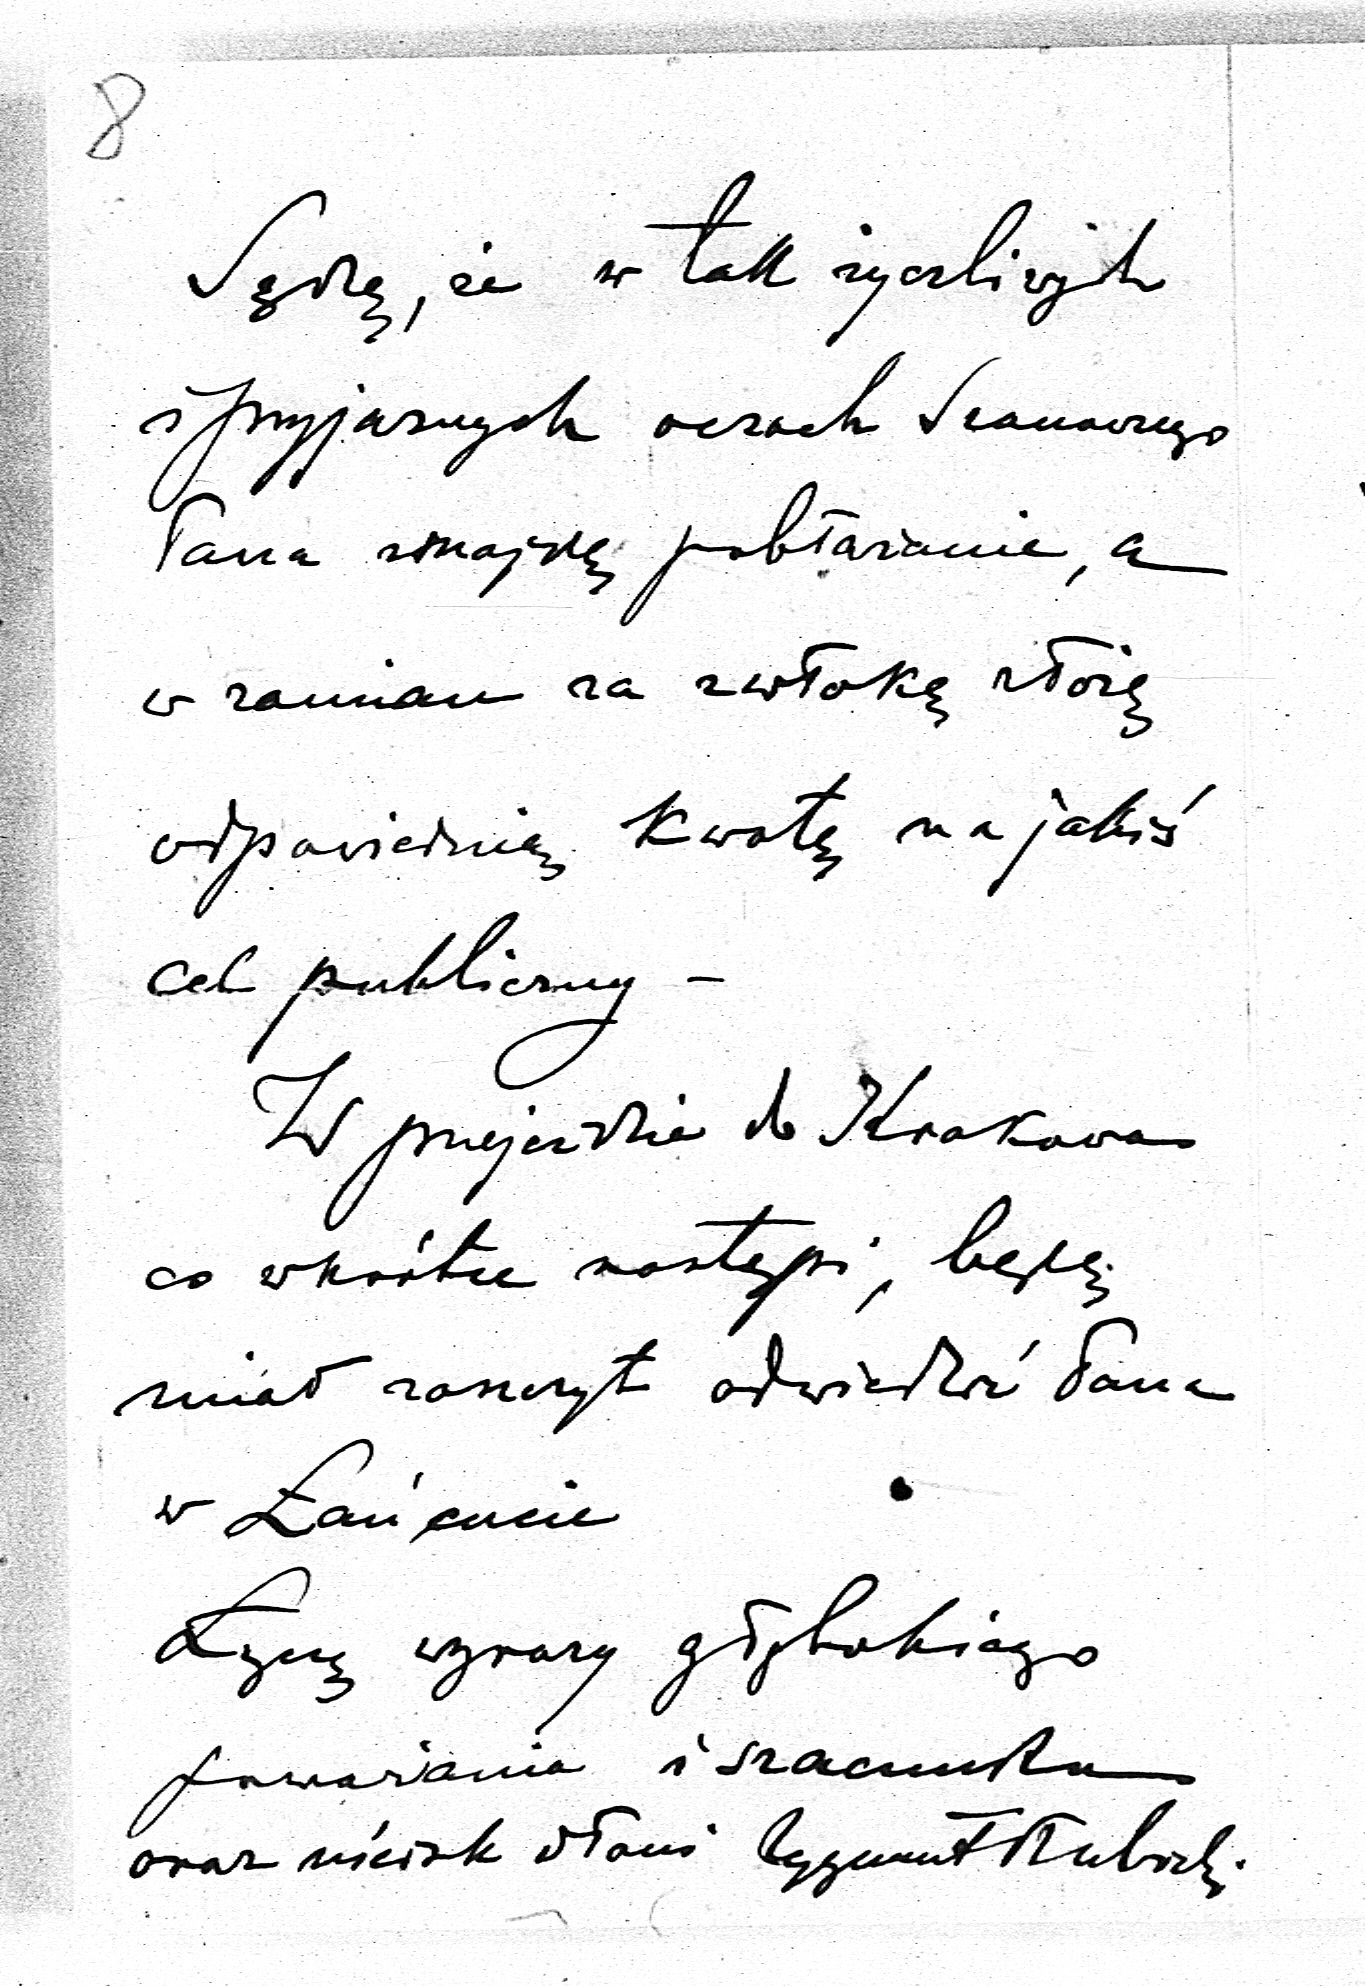 8
Sądzę, że w tak życzliwych
i przyjaznych oczach Szanownego
Pana znajdę pobłażanie, a
w zamian za zwłokę złożę
odpowiednią kwotę na jakiś
cel publiczny –
W przejeździe do Krakowa
co wkrótce nastąpi, będę
miał zaszczyt odwiedzić Pana
w Łańcucie
Łączę wyrazy głębokiego
poważania i szacunku
oraz uścisk dłoni Zygmunt